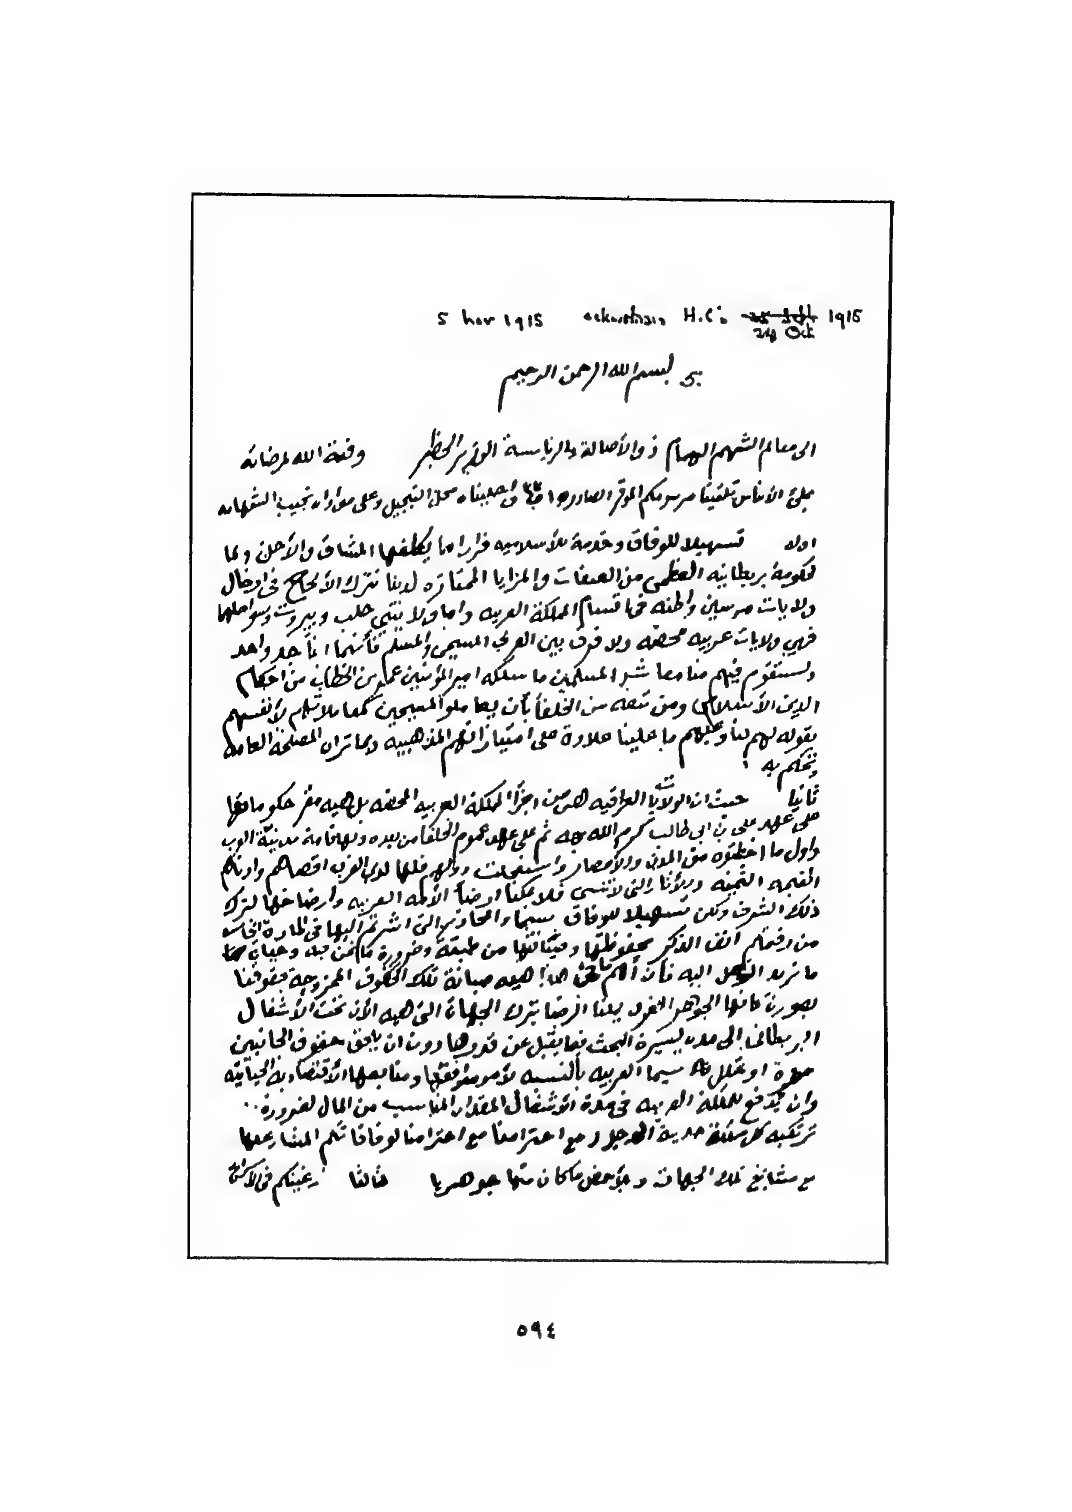 5 Nov 1915 H.C's 24 Oct 1915
بسم الله الرحمن الرحيم
الى معالي الشهم الهمام ذو الأصالة والرياسة الوزير الخطير وفقه الله لمرضاته
بملئ الأيناس تلقينا مرسومكم الموقر الصادر واحليناه محل التبجيل وعلى مؤداه نجيب الشهامه
اولا تسهيلا للوفاق وخدمة للأسلاميه فرارا مما يكلفها المشاق والأحن ولما
لحكومة بريطانيه العظمى من الصفات والمزايا الممتازه لدينا نترك الألحاح في ادخال
ولايات مرسين واطنه في اقسام المملكة العربيه واما ولايتي حلب وبيروت وسواحلها
فهي ولايات عربيه محضه ولا فرق بين العربي المسيحي والمسلم فأنهما ابنا جد واحد
ولستقوم فيهم منا معاشر المسلمين ما سلكه امير المؤمنين عمر بن الخطاب من احكام
الدين الأسلامي ومن تبعه من الخلفا بأن يعاملو المسيحين كمعاملاتهم لأنفسهم
بقوله لهم لنا وعليهم ما علينا علاوة على امتيازاتهم المذهبيه وبما تراه المصلحة العامه
وتحكم به
ثانيا حيث ان الولايات العراقيه هي من اجزا المملكة العربيه المحضه بل هيه مقر حكوماتها
على عهد علي بن ابي طالب كرم الله وجهه ثم على عهد عموم الخلفا من بعده وبها قامة مدنيّة العرب
واول ما اختطوه من المدن والأمصار واستفحلت دولهم فلها لدى العرب اقصاهم وادناهم
القيمه الثمينه والأثار التي لا تنسى فلا يمكنا ارضا الأمه العربيه وارضاخها لترك
ذلك الشرف ولكن تسهيلا للوفاق سيما والمحاذير التي اشرتم اليها في المادة الخامسه
من رقيمكم آنف الذكر محفوظتها وصيانتها من طبيعة وضرورة
ما نريد التوصل اليه فأن أهم ما في هذا هيه صيانة تلك الحقوق الممزوجه بحقوقنا
بصورة كانها الجوهر الفرد يمكنا الرضا بترك الجهات التي هيه الأن تحت الأشغال
البريطاني الى مدة يسيرة البحث فيما يقبل عن قدرها دون ان يلحق حقوق الجانبين
مضرة او خلل سيما العربيه بالنسبه لأمر مرافقها ومنابعها الأقتصاديه الحياتيه
وان يدفع للمملكة العربيه في مدة الأشغال المقدار المناسب من المال لضرورة ..
ترتكبه كل مملكة حديثة الوجود مع احترامنا لوفاقاتكم المشار اليها
مع مشايخ تلك الجهات وبالأخص ما كان منها جوهريا ثالثا رغبتكم في الأسراع
٥٩٤